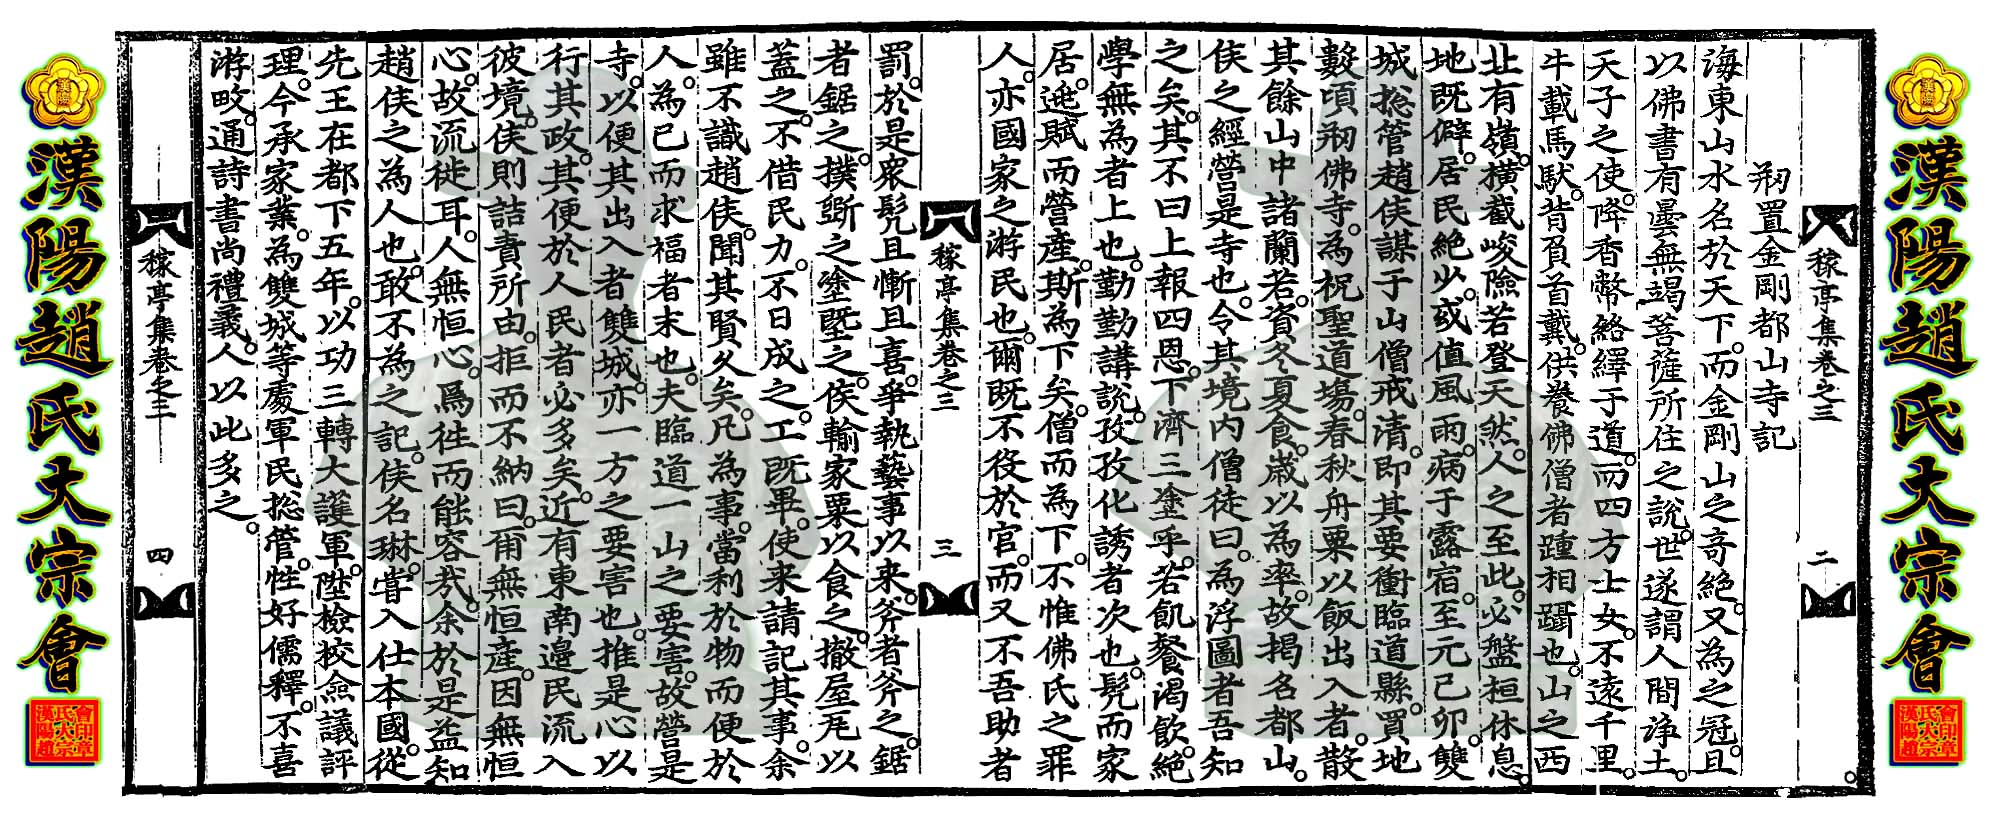 漢陽
漢陽趙氏大宗會
會印章
氏大宗
漢陽趙
稼亭集卷之三 二
刱置金剛都山寺記
海東山水名於天下。而金剛山之奇絶。又為之冠。且
以佛書有曇無竭菩薩所住之說。世遂謂人間淨土。
天子之使。降香幣絡繹于道。而四方士女。不遠千里。
牛載馬馱。背負首戴。供養佛僧者踵相躡也。山之西
北有嶺。橫截峻險若登天然。人之至此。必盤桓休息。
地既僻。居民絶少。或值風雨。病于露宿。至元己卯。雙
城摠管趙侯謀于山僧戒清。即其要衝臨道縣。買地
數頃。刱佛寺。為祝聖道場。春秋舟粟以飯出入者。散
其餘山中諸蘭若。資冬夏食。歲以為率。故揭名都山。
侯之經營是寺也。令其境内僧徒曰。為浮圖者吾知
之矣。其不曰上報四恩。下濟三塗乎。若飢餐渴飲。絶
學無為者上也。勤勤講說。孜孜化誘者次也。髡而家
居。逃賦而營産。斯為下矣。僧而為下。不惟佛氏之罪
人。亦國家之游民也。爾既不役於官。而又不吾助者
稼亭集卷之三 三
罰。於是衆髡且慚且喜。爭執藝事以来。斧者斧之。鋸
者鋸之。撲斲之塗墍之。侯輸家粟以食之。撤屋瓦以
蓋之。不借民力。不日成之。工既畢。使来請記其事。余
雖不識趙侯。聞其賢久矣。凡為事。當利於物而便於
人。為己而求福者末也。夫臨道一山之要害。故營是
寺。以便其出入者。雙城。亦一方之要害也。推是心以
行其政。其便於人民者必多矣。近有東南邊民流入
彼境。侯則詰責所由。拒而不納曰。爾無恒産。因無恒
心。故流徙耳。人無恒心。焉往而能容哉。余於是益知
趙侯之為人也。敢不為之記。侯名琳。嘗入仕本國。從
先王在都下五年。以功三轉大護軍。陞檢校僉議評
理。今承家業。為雙城等處軍民摠管。性好儒釋。不喜
游畋。通詩書尚禮義。人以此多之。
稼亭集卷之三 四
漢陽
漢陽趙氏大宗會
會印章
氏大宗
漢陽趙